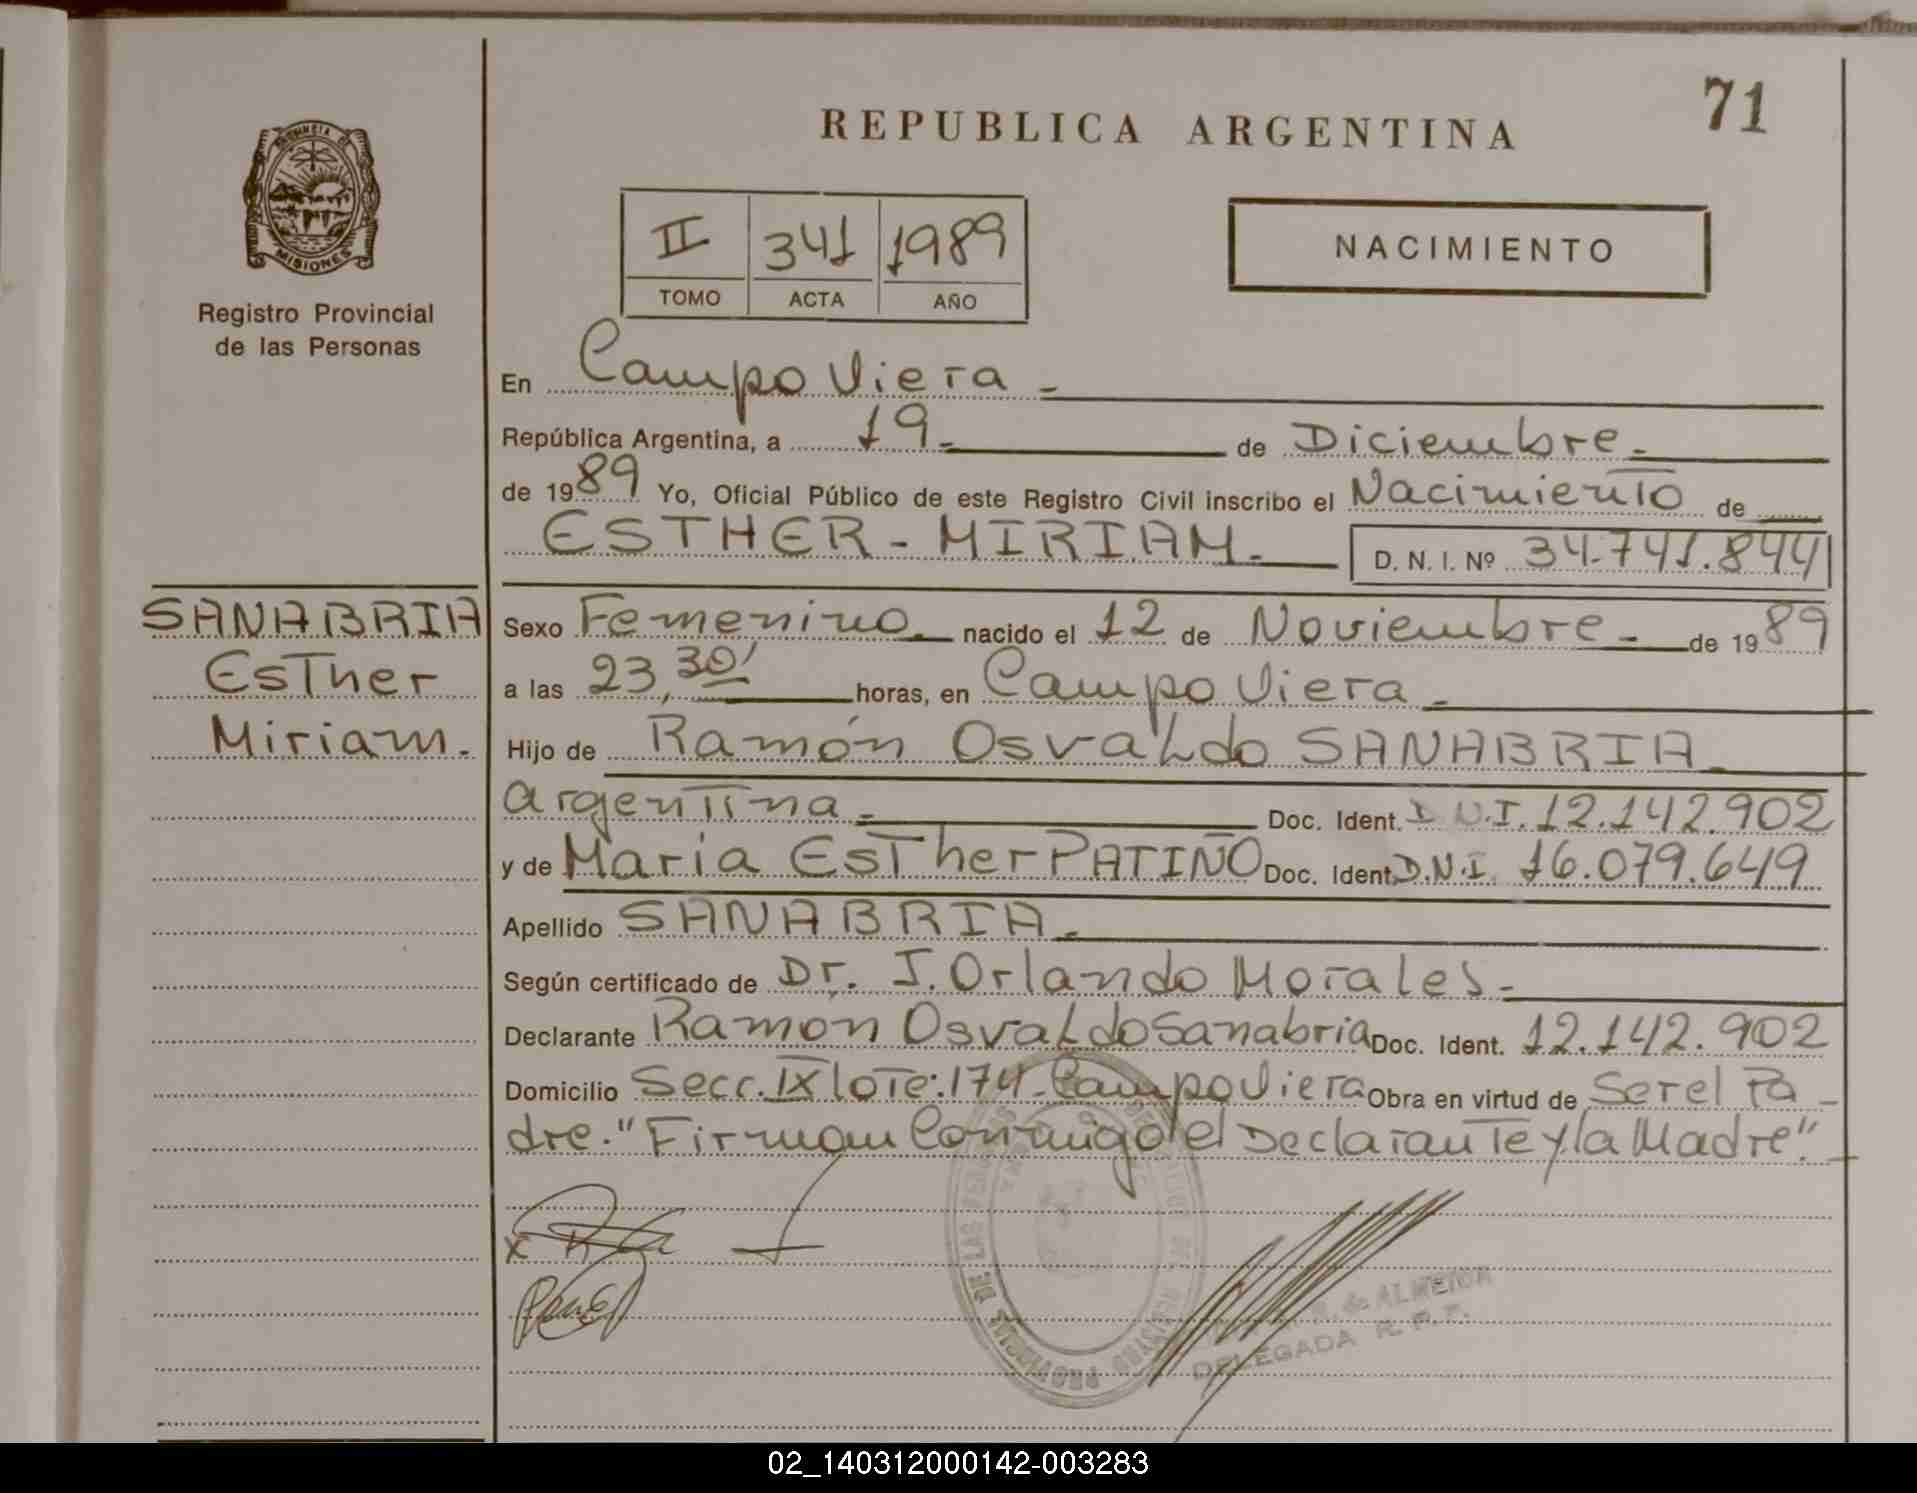 71
REPUBLICA ARGENTINA
PROVINCIA DE
MISIONES
Registro Provincial
de las Personas
II 341 1989
TOMO ACTA AÑO
NACIMIENTO
En Campo Viera -
República Argentina, a 19.- de Diciembre.-
de 1989 Yo, Oficial Público de este Registro Civil inscribo el Nacimiento de
ESTHER - MIRIAM.- D. N. I. Nº 34.741.844
SANABRIA
Esther
Miriam.-
Sexo Femenino. nacido el 12 de Noviembre.- de 1989
a las 23,30' horas, en Campo Viera.-
Hijo de Ramón Osvaldo SANABRIA.-
argentina.- Doc. Ident. D.N.I. 12.142.902
y de María Esther PATIÑO Doc. Ident. D.N.I. 16.079.649
Apellido SANABRIA.-
Según certificado de Dr. J. Orlando Morales.-
Declarante Ramón Osvaldo Sanabria Doc. Ident. 12.142.902
Domicilio Secc. IX lote: 174 - Campo Viera Obra en virtud de Ser el Pa-
dre. "Firman Conmigo el Declarante y la Madre".-
de ALMEIDA
DELEGADA R. P. P.
02_140312000142-003283